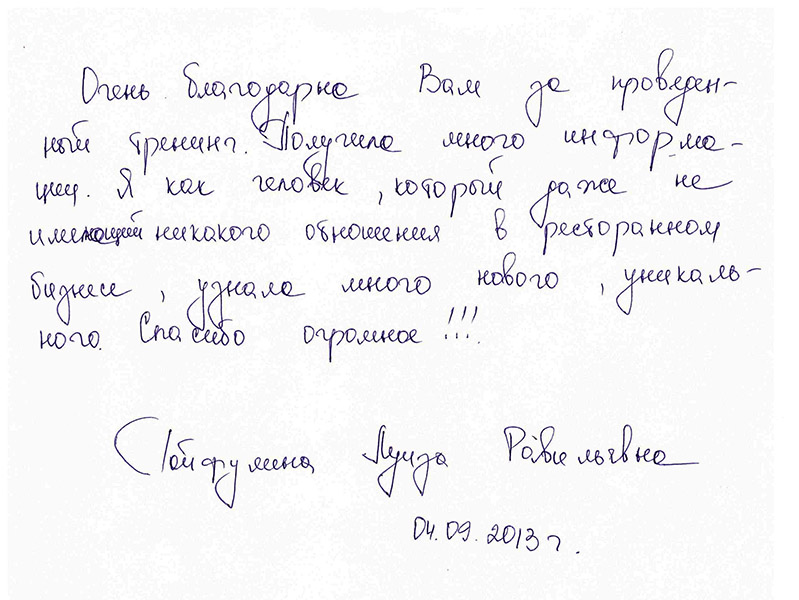 Очень благодарна Вам за проведен-
ный тренинг. Получила много информа-
ции. Я как человек, который даже не
имеющий никакого отношения в ресторанном
бизнесе, узнала много нового, уникаль-
ного. Спасибо огромное!!!
Луиза
04.09.2013 г.